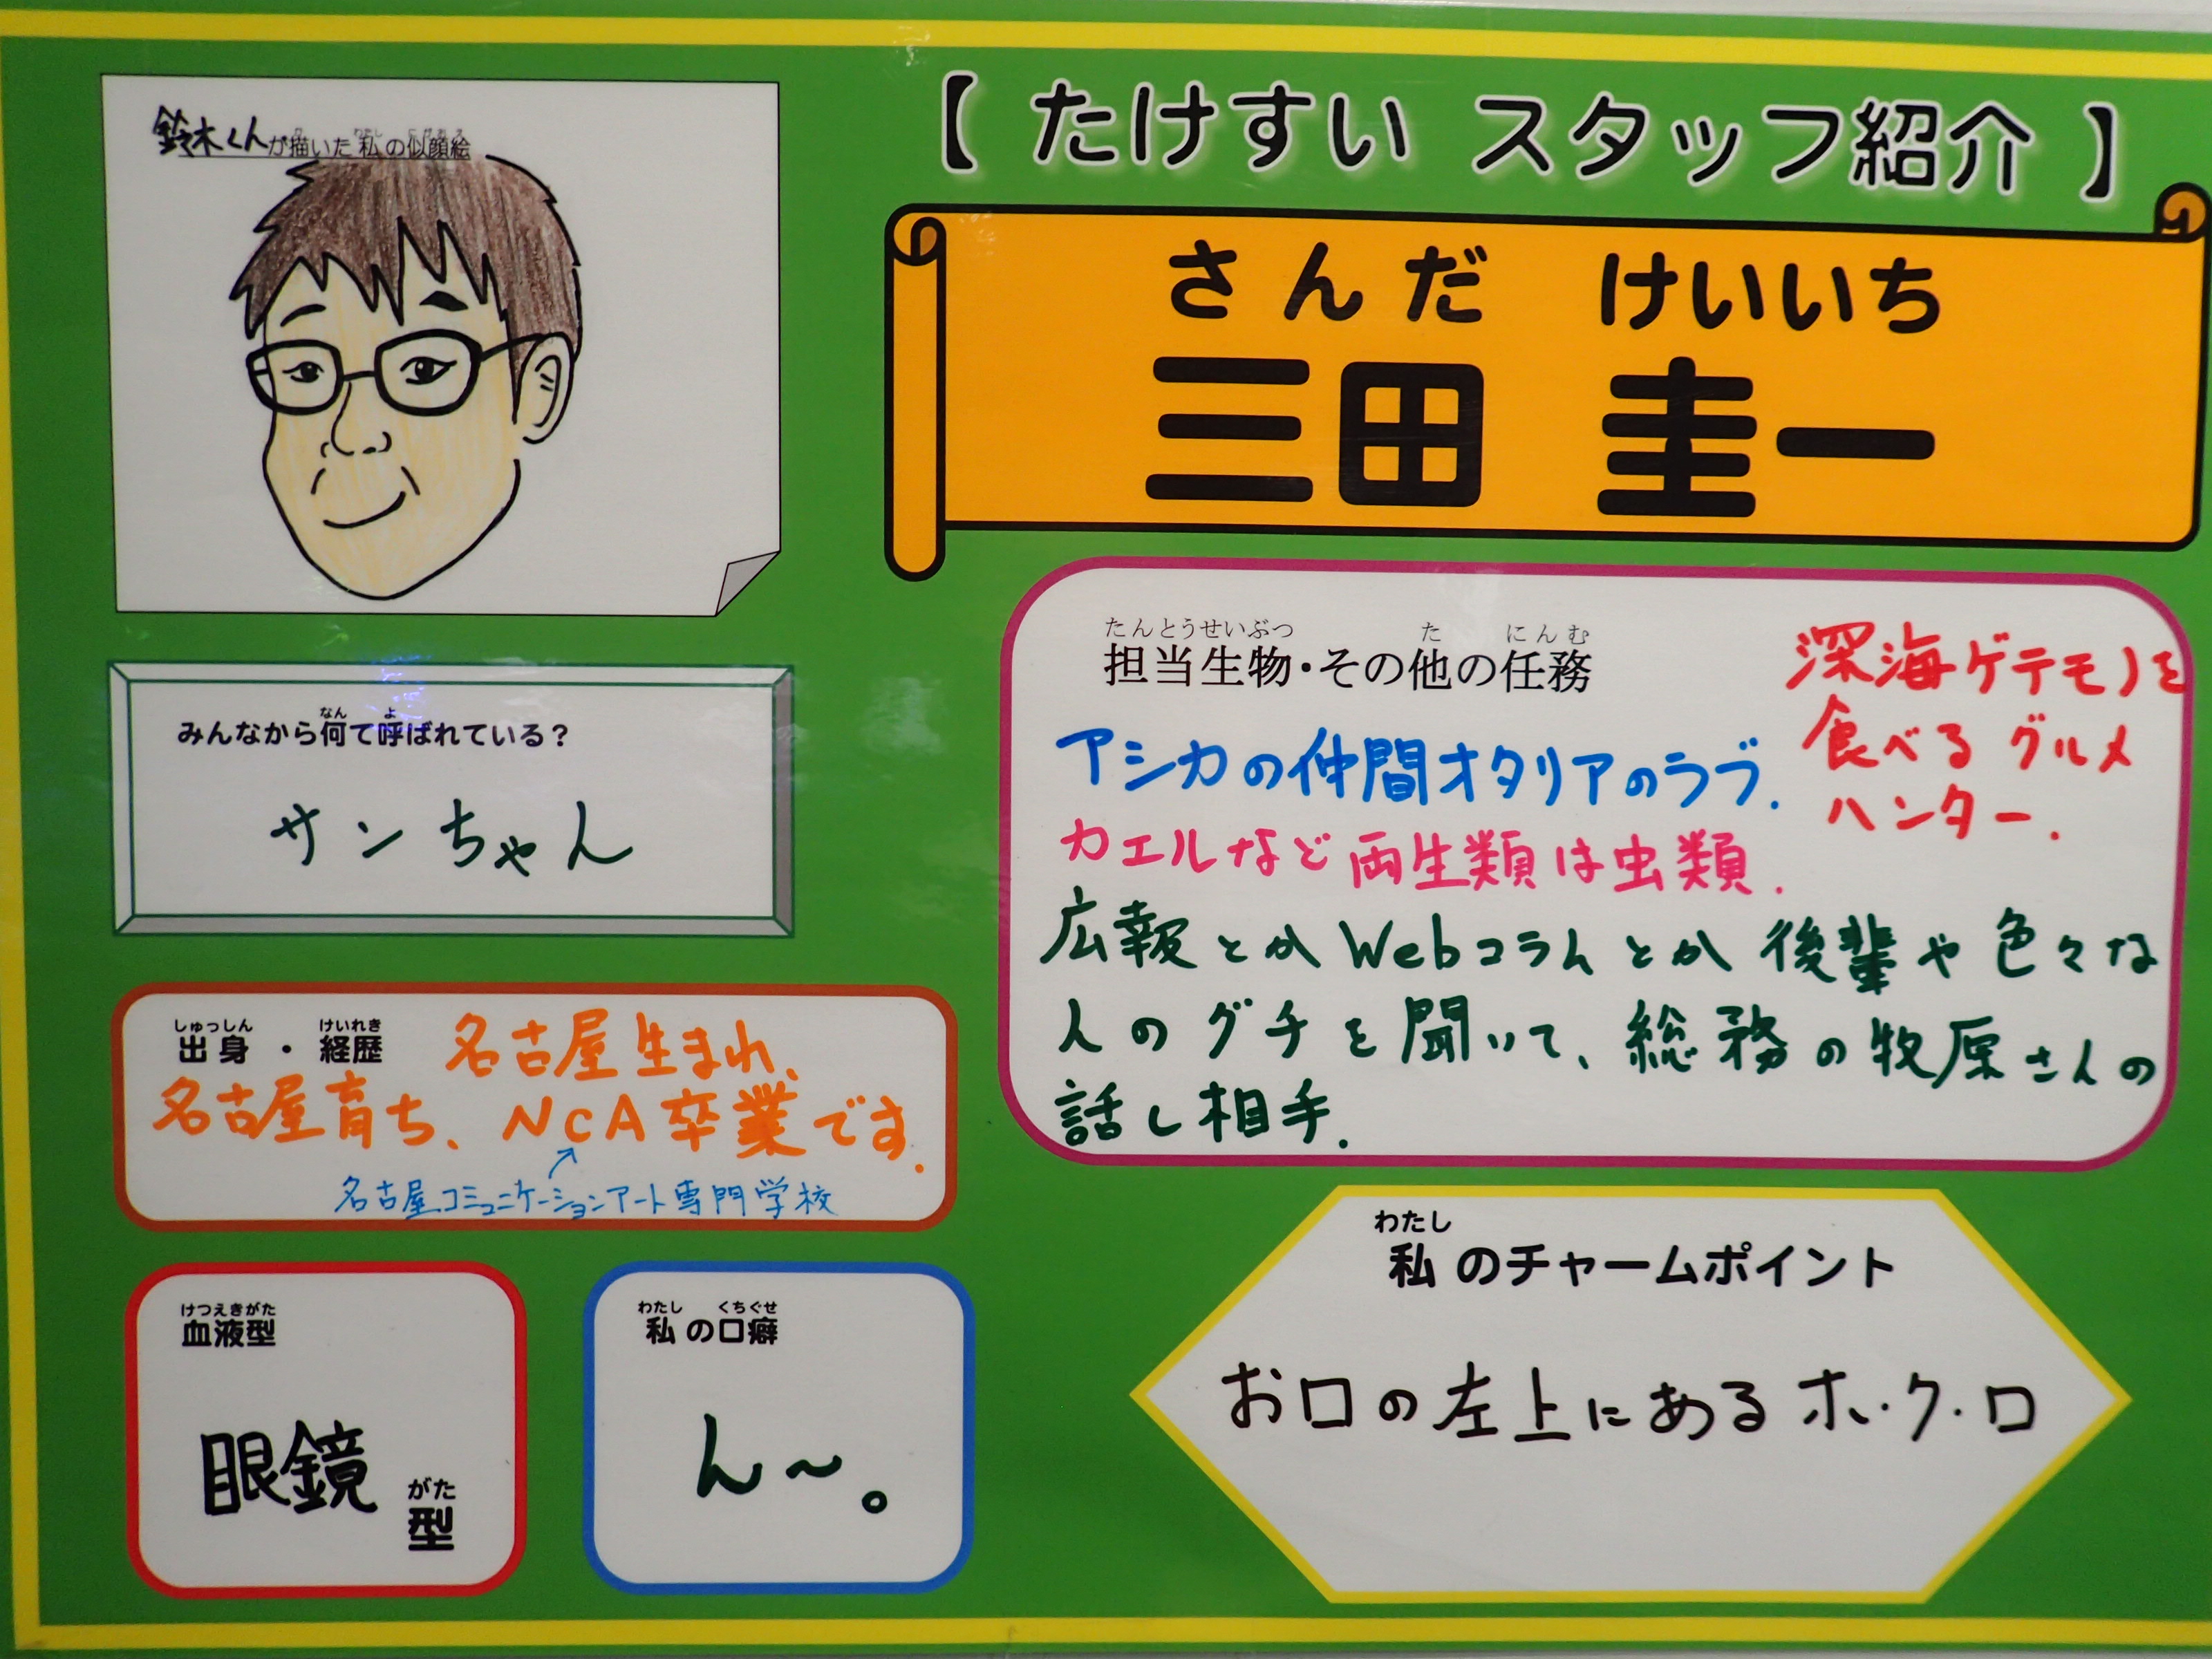 【 たけすい スタッフ紹介 】
さんだ けいいち
三田 圭一
鈴木くんが描いた私の似顔絵
みんなから何て呼ばれている?
なん よ
サンちゃん
しゅっしん けいれき
出身・経歴 名古屋生まれ、
名古屋育ち、NCA卒業です.
名古屋コミュニケーションアート専門学校
けつえきがた
血液型
眼鏡 型
がた
わたし くちぐせ
私の口癖
ん〜。
たんとうせいぶつ た にんむ
担当生物・その他の任務
アシカの仲間オタリアのラブ.
カエルなど両生類は虫類.
広報とかWebコラムとか後輩や色々な
人のグチを聞いて、総務の牧原さんの
話し相手.
深海ゲテモノを
食べるグルメ
ハンター.
わたし
私のチャームポイント
お口の左上にあるホ・ク・ロ